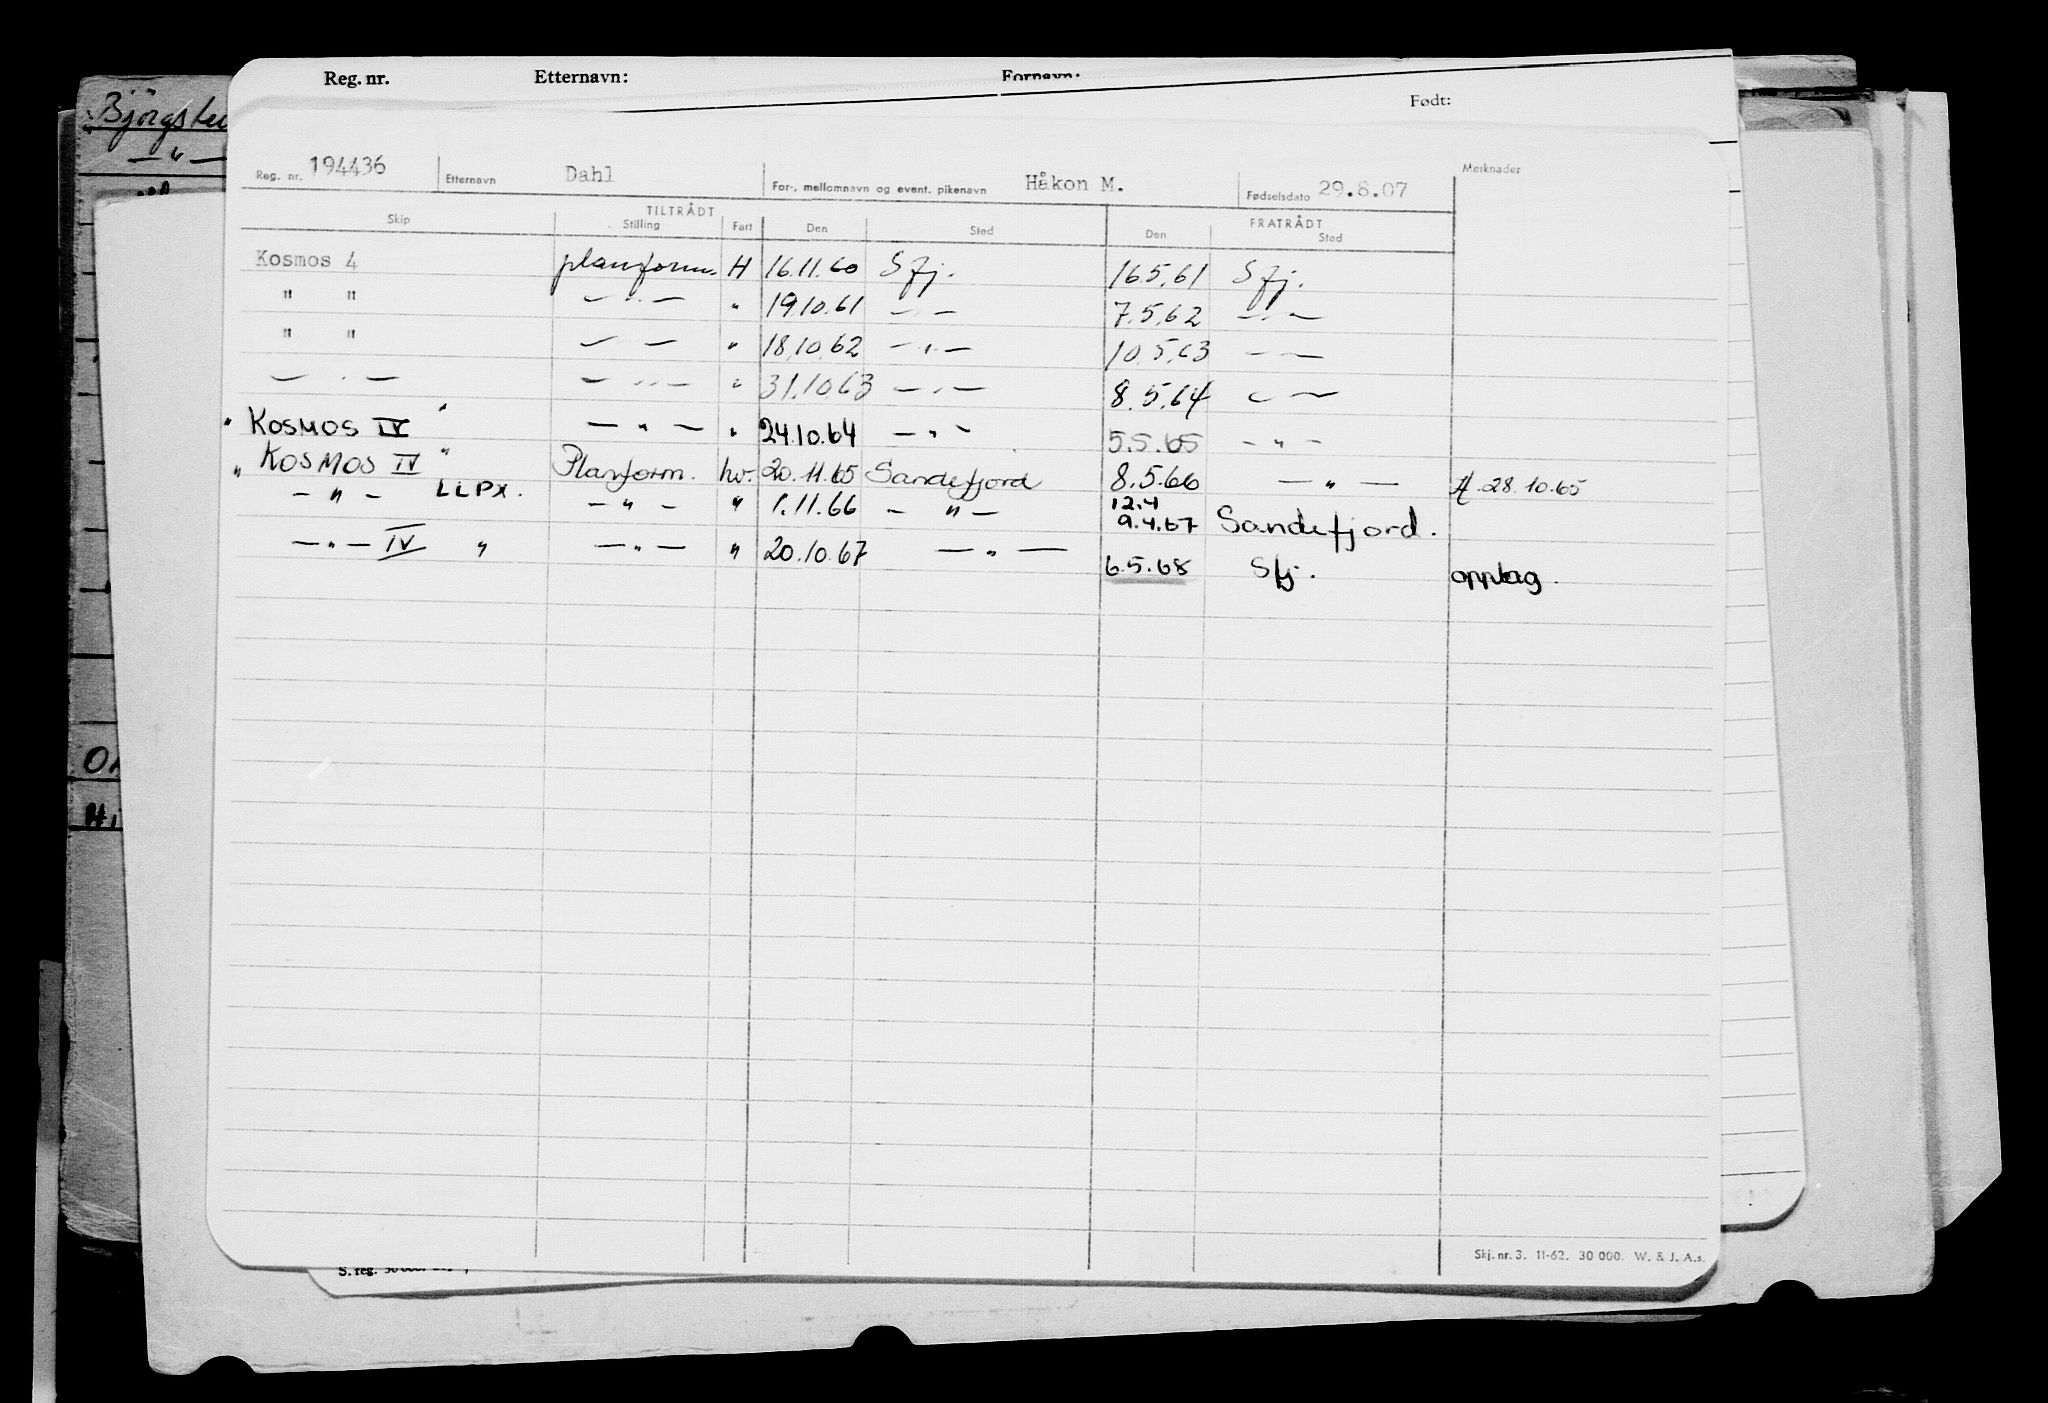 Reg. nr. Etternavn: Fornavn:
Født:
Björgs
— " —
Reg. nr. 194436 Etternavn Dahl For-, mellomnavn og event. pikenavn Håkon M. Fødselsdato 29.8.07 Merknader
TILTRÅDT FRATRÅDT
Skip Stilling Fart Den Sted Den Sted
Kosmos 4 planform. H 16.11.60 Sfj. 16.5.61 Sfj.
" " — " — " 19.10.61 — " — 7.5.62 — " —
" " — — " 18.10.62 — " — 10.5.63 — —
— " — — " — " 31.10.63 — " — 8.5.64 — —
" KOSMOS IV " — " — " 24.10.64 — " — 5.5.65 — " —
" KOSMOS IV " Planform. hv. 20.11.65 Sandefjord 8.5.66 — " — A. 28.10.65
— " — LLPX. — " — " 1.11.66 — " — 12.4 9.4.67 Sandefjord.
— " — IV " — " — " 20.10.67 — " — 6.5.68 Sfj. opplag.
Skj. nr. 3. 11-62. 30 000. W. & J. A.s.
S. reg.